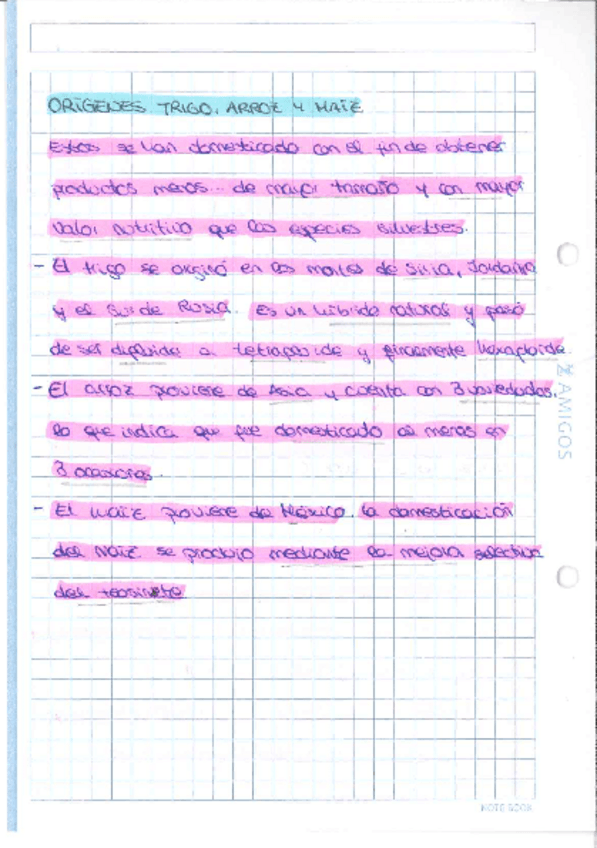 ORÍGENES TRIGO, ARROZ Y MAÍZ
Estos se han domesticado con el fin de obtener
productos menos... de mayor tamaño y con mayor
valor nutritivo que las especies silvestres.
- El trigo se originó en los montes de Siria, Jordania
y el Sur de Rusia. Es un híbrido natural y pasó
de ser diploide a tetraploide y finalmente hexaploide.
- El arroz proviene de Asia y cuenta con 3 variedades,
lo que indica que fue domesticado al menos en
3 ocasiones.
- El maíz proviene de México. la domesticación
del maíz se produjo mediante la mejora selectiva
del teosinte
AMIGOS
NOTEBOOK